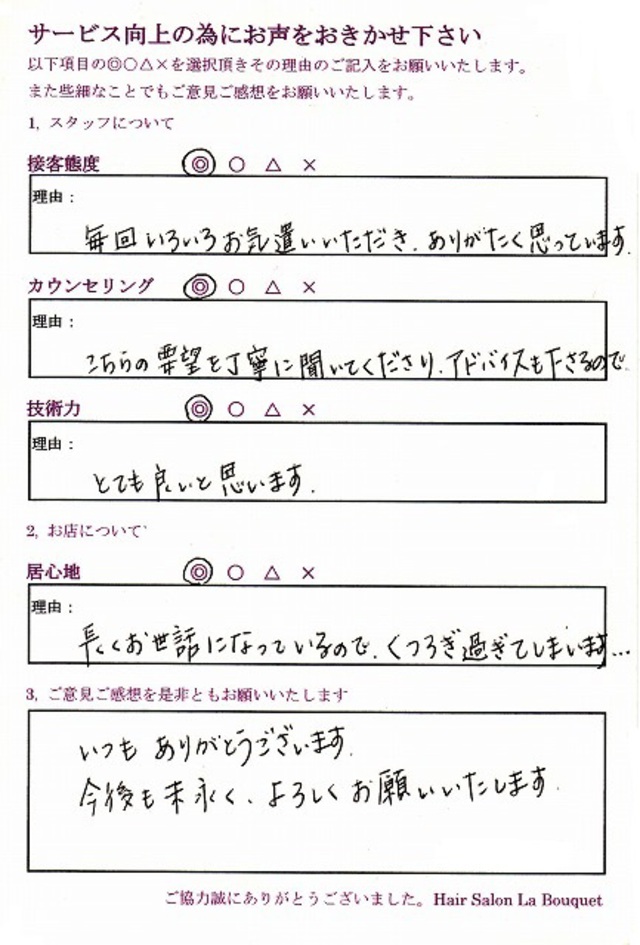 サービス向上の為にお声をおきかせ下さい
以下項目の◎○△×を選択頂きその理由のご記入をお願いいたします。
また些細なことでもご意見ご感想をお願いいたします。
1, スタッフについて
接客態度 ◎ ○ △ ×
理由：
毎回いろいろお気遣いいただき、ありがたく思っています。
カウンセリング ◎ ○ △ ×
理由：
こちらの要望を丁寧に聞いてくださり、アドバイスも下さるので
技術力 ◎ ○ △ ×
理由：
とても良いと思います。
2, お店について
居心地 ◎ ○ △ ×
理由：
長くお世話になっているので、くつろぎ過ぎてしまいます…
3, ご意見ご感想を是非ともお願いいたします
いつも ありがとうございます。
今後も末永く、よろしくお願いいたします。
ご協力誠にありがとうございました。Hair Salon La Bouquet